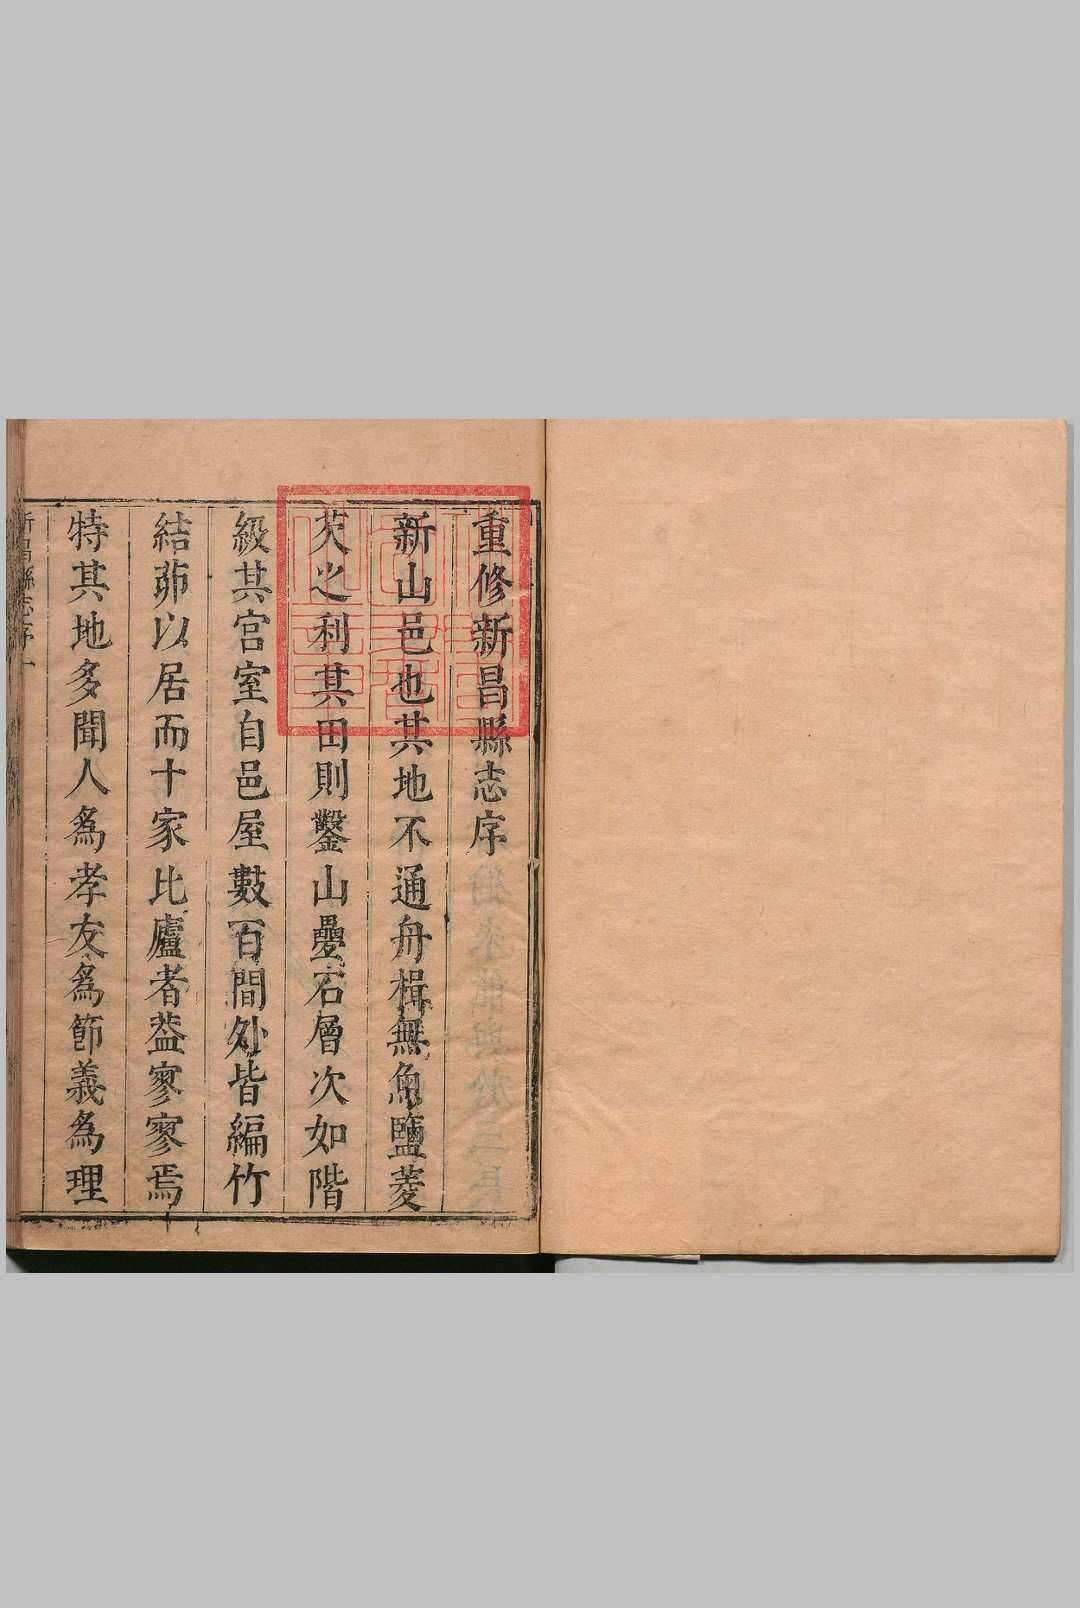 重修新昌縣志序
新山邑也其地不通舟楫無魚鹽菱
芡之利其田則鑿山疊石層次如階
級其宮室自邑屋數百間外皆編竹
結茆以居而十家比廬者葢寥寥焉
特其地多聞人為孝友為節義為理
新昌縣志序一